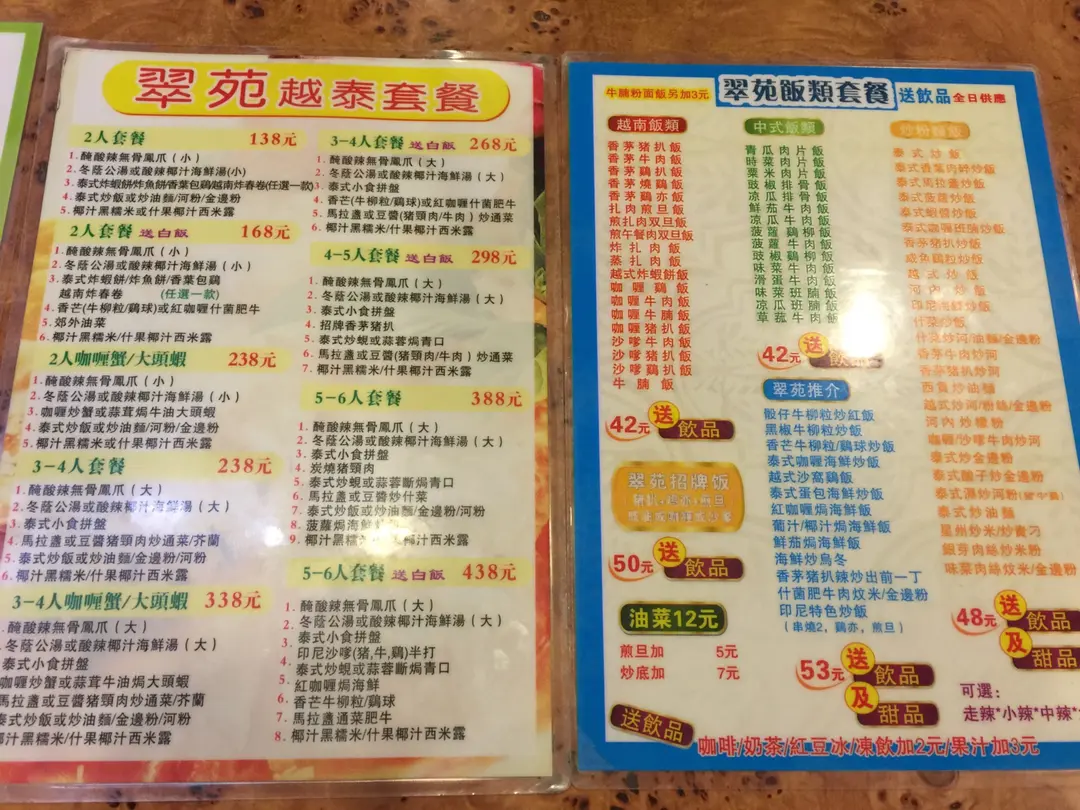 翠苑越泰套餐
2人套餐 138元
1.醃酸辣無骨鳳爪(小)
2.冬蔭公湯或酸辣椰汁海鮮湯(小)
3.泰式炸蝦餅/炸魚餅/香葉包鷄/越南炸春卷(任選一款)
4.泰式炒飯或炒油麵/河粉/金邊粉
5.椰汁黑糯米或什果椰汁西米露
2人套餐 送白飯 168元
1.醃酸辣無骨鳳爪(小)
2.冬蔭公湯或酸辣椰汁海鮮湯(小)
3.泰式炸蝦餅/炸魚餅/香葉包鷄
越南炸春卷 (任選一款)
4.香芒(牛柳粒/鷄球)或紅咖喱什菌肥牛
5.郊外油菜
6.椰汁黑糯米/什果椰汁西米露
2人咖喱蟹/大頭蝦 238元
1.醃酸辣無骨鳳爪(大)
2.冬蔭公湯或酸辣椰汁海鮮湯(大)
3.咖喱炒蟹或蒜茸焗牛油大頭蝦
4.泰式炒飯或炒油麵/河粉/金邊粉
5.椰汁黑糯米/什果椰汁西米露
3-4人套餐 238元
1.醃酸辣無骨鳳爪(大)
2.冬蔭公湯或酸辣椰汁海鮮湯(大)
3.泰式小食拼盤
4.馬拉盞或豆醬豬頸肉炒通菜/芥蘭
5.泰式炒飯或炒油麵/金邊粉/河粉
6.椰汁黑糯米/什果椰汁西米露
3-4人咖喱蟹/大頭蝦 338元
醃酸辣無骨鳳爪(大)
冬蔭公湯或酸辣椰汁海鮮湯(大)
泰式小食拼盤
咖喱炒蟹或蒜茸牛油焗大頭蝦
馬拉盞或豆醬豬頸肉炒通菜/芥蘭
泰式炒飯或炒油麵/金邊粉/河粉
椰汁黑糯米/什果椰汁西米露
3-4人套餐 送白飯 268元
1.醃酸辣無骨鳳爪(大)
2.冬蔭公湯或酸辣椰汁海鮮湯(大)
3.泰式小食拼盤
4.香芒(牛柳粒/鷄球)或紅咖喱什菌肥牛
5.馬拉盞或豆醬(豬頸肉/牛肉)炒通菜
6.椰汁黑糯米/什果椰汁西米露
4-5人套餐 送白飯 298元
1.醃酸辣無骨鳳爪(大)
2.冬蔭公湯或酸辣椰汁海鮮湯(大)
3.泰式小食拼盤
4.招牌香茅豬扒
5.泰式炒蜆或蒜蓉焗青口
6.馬拉盞或豆醬(豬頸肉/牛肉)炒通菜
7.椰汁黑糯米/什果椰汁西米露
5-6人套餐 388元
1.醃酸辣無骨鳳爪(大)
2.冬蔭公湯或酸辣椰汁海鮮湯(大)
3.泰式小食拼盤
4.炭燒豬頸肉
5.泰式炒蜆或蒜蓉焗青口
6.馬拉盞或豆醬炒什菜
7.泰式炒飯或炒油麵/金邊粉/河粉
8.菠蘿焗海鮮飯
9.椰汁黑糯米/什果椰汁西米露
5-6人套餐 送白飯 438元
1.醃酸辣無骨鳳爪(大)
2.冬蔭公湯或酸辣椰汁海鮮湯(大)
泰式小食拼盤
3.印尼沙嗲(豬,牛,鷄)半打
4.泰式炒蜆或蒜蓉焗青口
5.紅咖喱焗海鮮
6.香芒牛柳粒/鷄球
7.馬拉盞通菜肥牛
8.椰汁黑糯米/什果椰汁西米露
牛腩粉面飯另加3元
翠苑飯類套餐
送飲品 全日供應
越南飯類
香茅豬扒飯
香茅牛肉飯
香茅鷄扒飯
香茅燒鷄飯
香茅鷄亦飯
扎肉煎旦飯
煎扎肉双旦飯
煎午餐肉双旦飯
炸扎肉飯
蒸扎肉飯
越式炸蝦餅飯
咖喱鷄飯
咖喱牛肉飯
咖喱牛腩飯
咖喱豬扒飯
沙嗲牛肉飯
沙嗲豬扒飯
沙嗲鷄扒飯
牛腩飯
42元 送飲品
翠苑招牌飯
50元 送飲品
油菜12元
煎旦加 5元
炒底加 7元
中式飯類
青瓜肉片飯
時菜肉片飯
粟米肉片飯
豉椒排骨飯
凉瓜排骨飯
鮮茄牛肉飯
凉瓜牛肉飯
菠蘿鷄柳飯
菠蘿牛肉飯
豉椒鷄柳飯
味菜牛肉飯
滑蛋牛肉飯
味菜班腩飯
凉瓜班腩飯
草菇牛肉飯
42元 送飲品
翠苑推介
骰仔牛柳粒炒紅飯
黑椒牛柳粒炒飯
香芒牛柳粒/鷄球炒飯
泰式咖喱海鮮炒飯
越式沙窩鷄飯
泰式蛋包海鮮炒飯
紅咖喱焗海鮮飯
葡汁/椰汁焗海鮮飯
鮮茄焗海鮮飯
海鮮炒烏冬
香茅豬扒辣炒出前一丁
什菌肥牛肉炆米/金邊粉
印尼特色炒飯
(串燒2,鷄亦,煎旦)
53元 送飲品及甜品
炒粉麵飯
泰式炒飯
泰式香葉肉碎炒飯
泰式馬拉盞炒飯
泰式菠蘿炒飯
泰式蝦醬炒飯
泰式咖喱班腩炒飯
香茅豬扒炒飯
咸魚鷄粒炒飯
越式炒飯
河內炒飯
印尼海鮮炒飯
什菜炒飯
什菜炒河/油麵/金邊粉
香茅牛肉炒河
香茅豬扒炒河
西貢炒油麵
越式炒河/粉絲/金邊粉
河內炒檬粉
咖喱/沙嗲牛肉炒河
泰式炒金邊粉
泰式醋子炒金邊粉
泰式濕炒河粉
泰式炒油麵
星州炒米/炒貴刁
銀芽肉絲炒米粉
味菜肉絲炆米/金邊粉
48元 送飲品及甜品
可選:
走辣*小辣*中辣*
送飲品
咖啡/奶茶/紅豆冰/凍飲加2元/果汁加3元